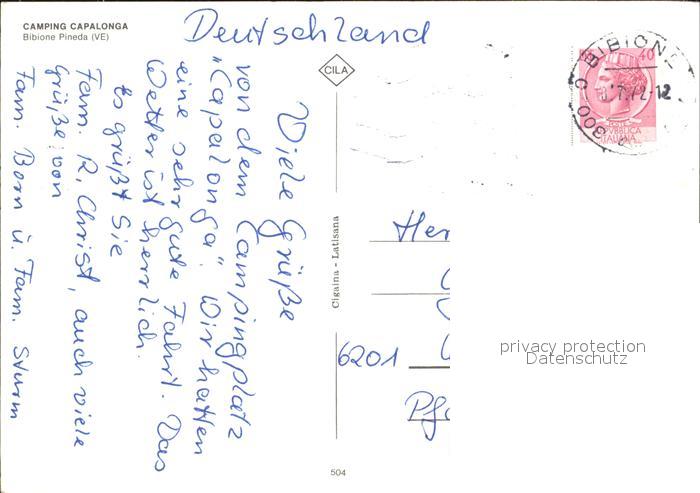 CAMPING CAPALONGA
Bibione Pineda (VE)
Deutschland
CILA
Viele Grüße
von dem Campingplatz
"Capalonga". Wir hatten
eine sehr gute Fahrt. Das
Wetter ist herrlich.
Es grüßt Sie
Fam. R. Christ, auch viele
Grüße von
Fam. Born u. Fam. Sturm
Cigaina - Latisana
BIBIONE
40
POSTE
REPUBBLICA
ITALIANA
Her
6201
privacy protection
Datenschutz
504